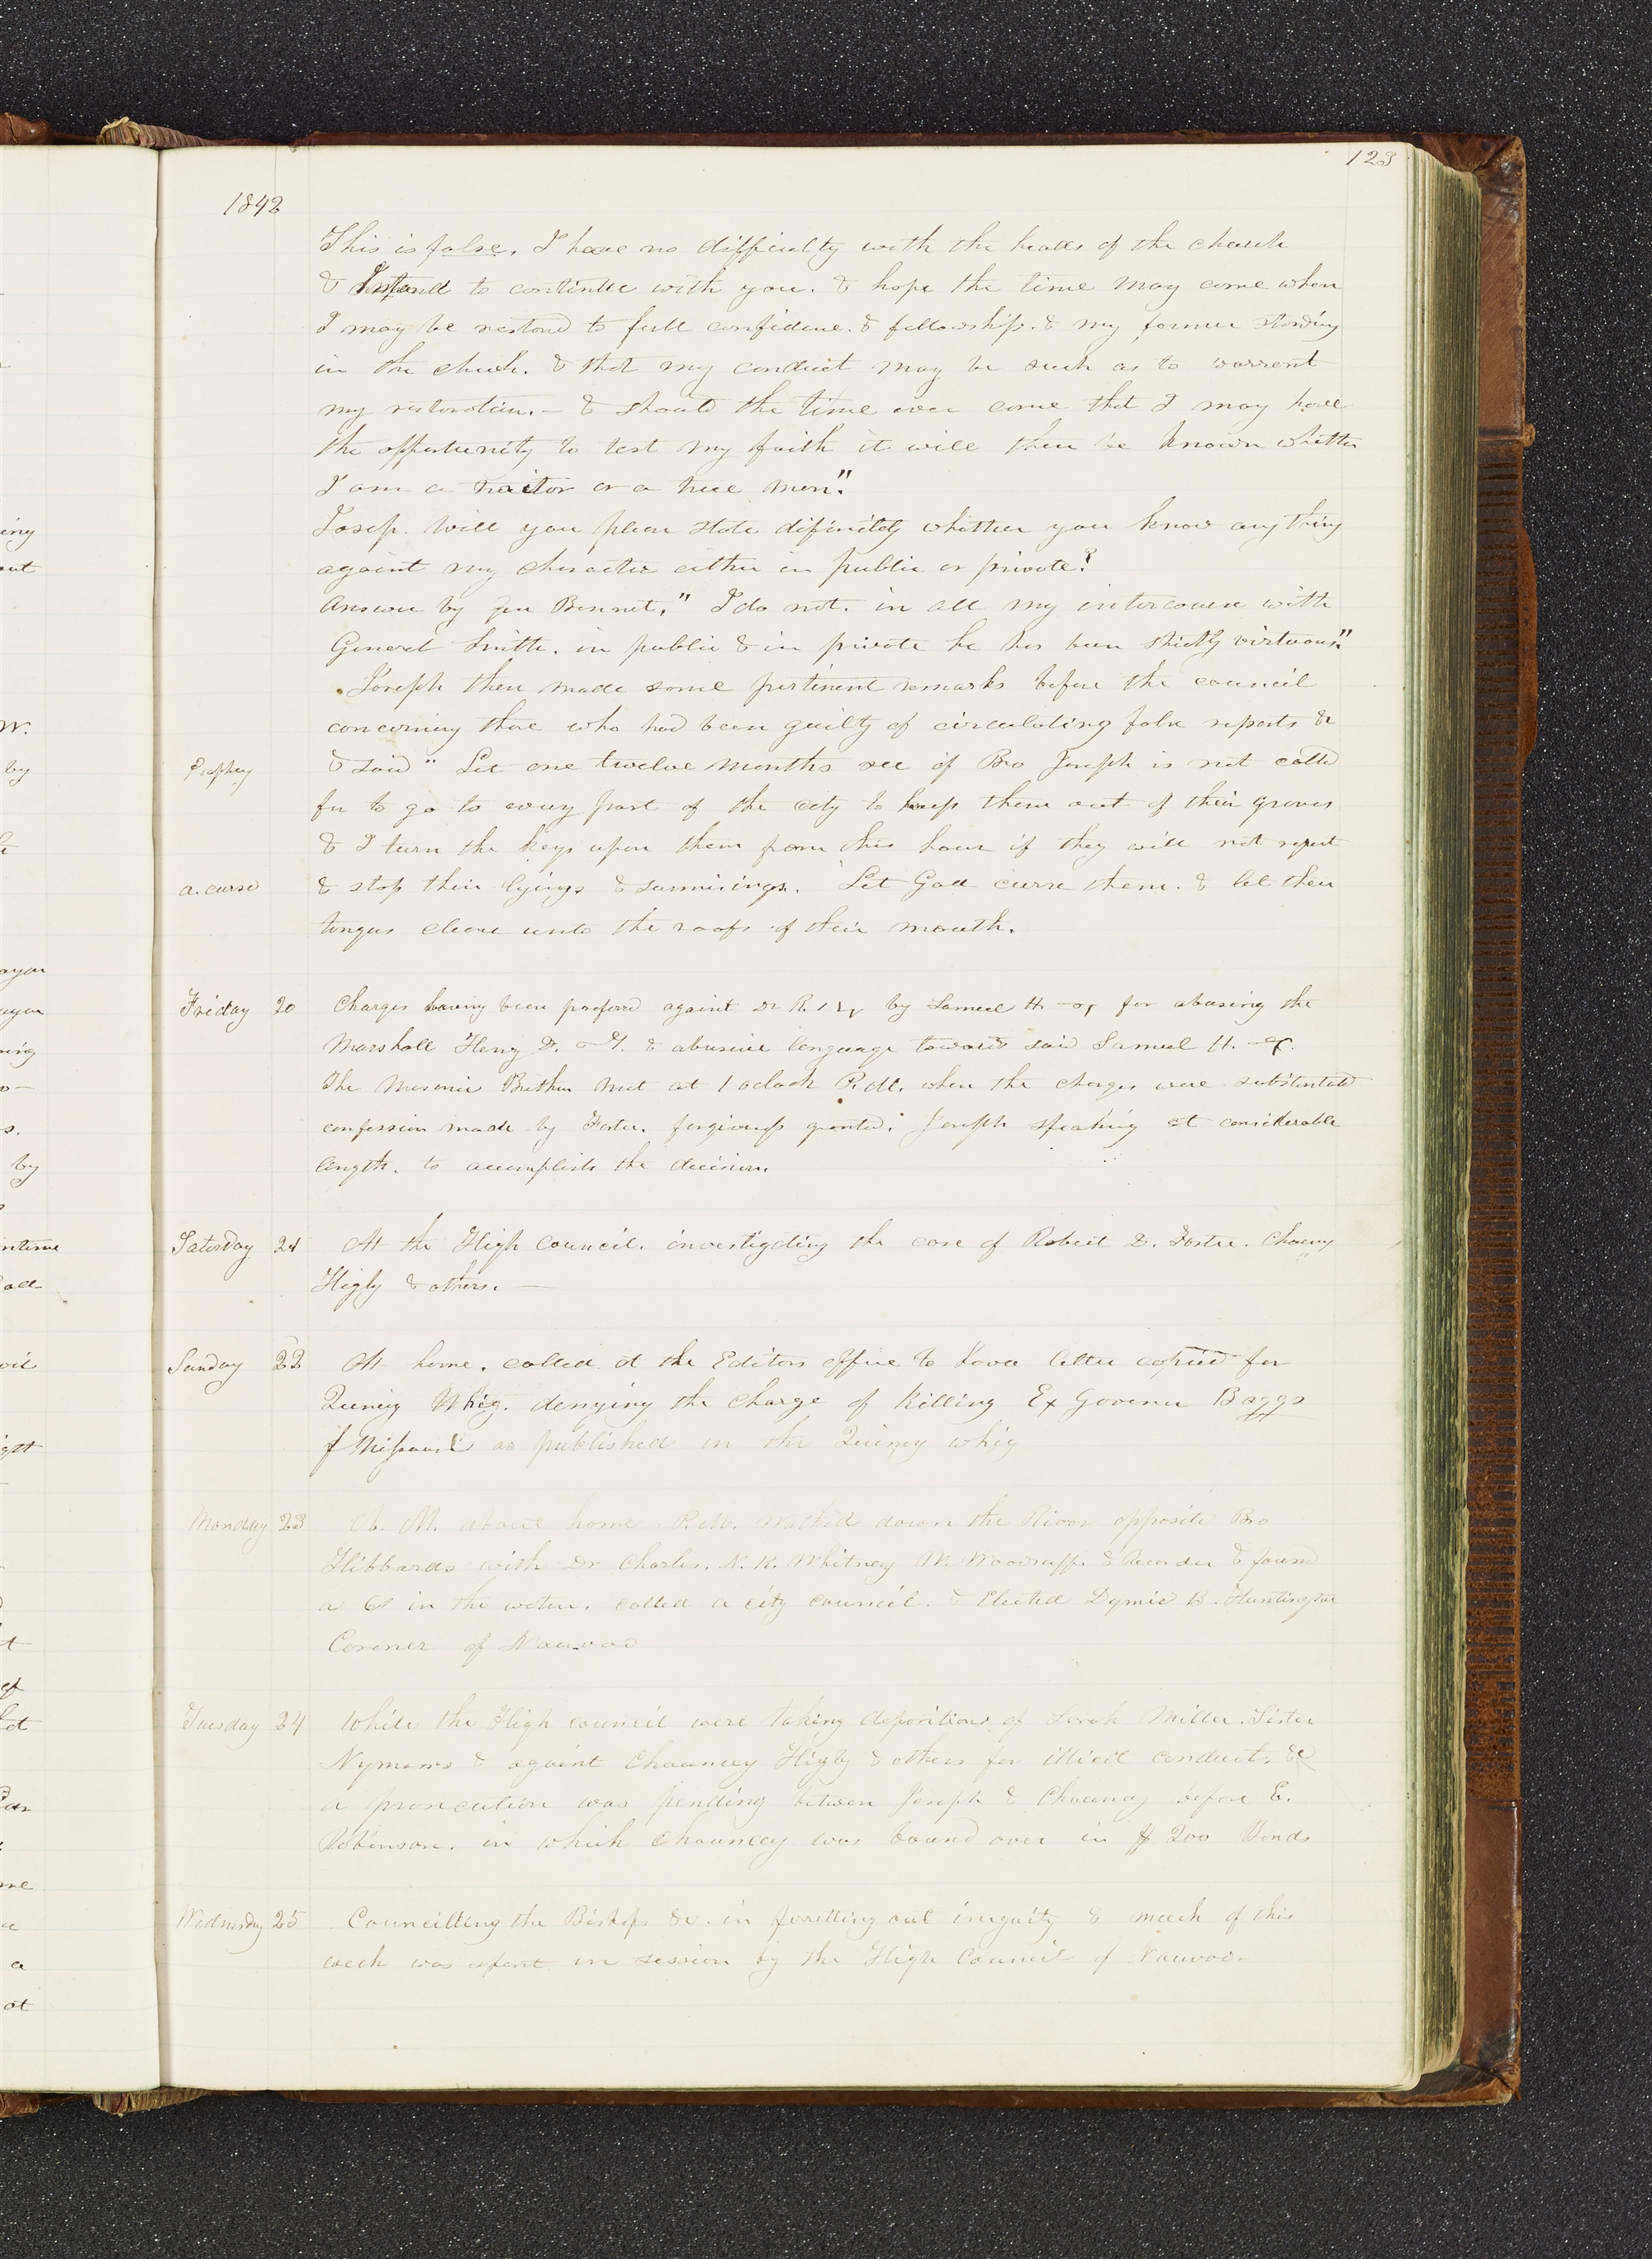 123
1842
This is false. I have no difficulty with the heads of the church
& Intend to continue with you. & hope the time may come when
I may be restored to full confidence. & fellowship. & my former standing
in the church. & that my conduct may be such as to warrent
my restoration. — & should the time ever come that I may have
the oppertunity to test my faith it will then be known whether
I am a traitor or a true man."
Joseph. Will you please state difinitely whether you know any thing
against my character either in public or private?
Answer by Gen Bennet. "I do not. in all my intercourse with
General Smith. in public & in private he has been strictly virtuous."
Joseph then made some pertinent remarks before the council
concerning those who had been guilty of circulating false reports &c
Prophecy & said "Let one twelve months see if Bro Joseph is not called
for to go to every part of the city to keep them out of their graves
& I turn the keys upon them from this hour if they will not repent
a curse & stop their lyings & surmisings. Let God curse them. & let their
tongues cleave unto the roofs of their mouth.
Friday 20 Charges having been prefered against Dr R. by Samuel H. for abusing the
Marshall Henry G. & abusive language towards said Samuel H.
The Masonic Brethren met at 1 oclock P.M. when the charges were substantiated
confession made by Foster. forgiveness granted. Joseph speaking at considerable
length. to accomplish the decision.
Saturday 21 At the High council. investigating the case of Robert D. Foster. Chauncy
Higby & others. —
Sunday 22 At home. called at the Editors office to have letter copied for
Quincy Whig. denying the charge of killing Ex Govenor Boggs
of Missouri as published in the Quincy whig
Monday 23 A. M. about home. P.M. Walked down the River opposite Bro
Hibbards with Dr Charles. N. K. Whitney W. Woodruff. & Recorder & found
a in the water. called a city council. & Elected Dymic B. Huntington
Coroner of Nauvoo
Tuesday 24 While the High council were taking depositions of Sarah Miller. Sister
Nymans & against Chauncey Higby & others for illicit conduct. &c
a prosecution was pending between Joseph & Chauncy before E.
Robinson. in which Chauncey was bound over in $200 Bonds
Wednesday 25 Councilling the Bishops &c. in ferretting out iniquity & much of this
week was spent in session by the High Council of Nauvoo.
ing
out
W.
by
ayor
by
a
ot